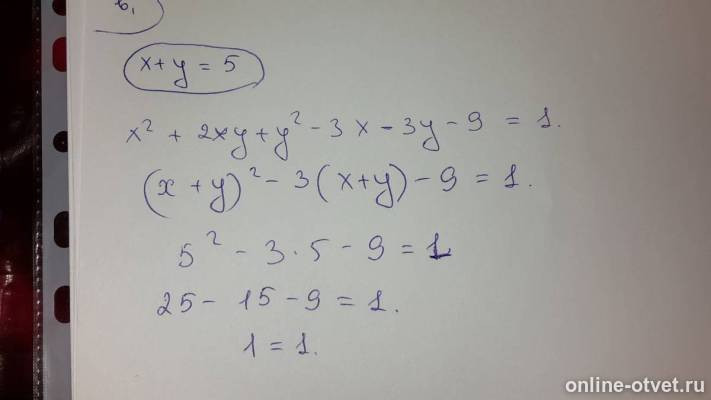 6,
x + y = 5
x² + 2xy + y² - 3x - 3y - 9 = 1.
(x + y)² - 3(x+y) - 9 = 1.
5² - 3 · 5 - 9 = 1
25 - 15 - 9 = 1.
1 = 1.
online-otvet.ru